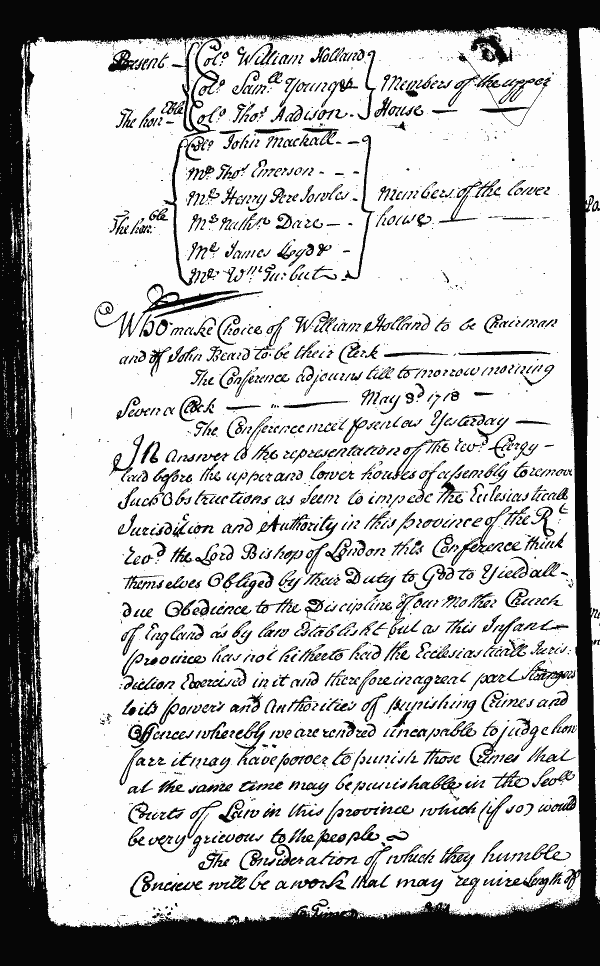 Present — Colo. William Holland
Colo. Samll Young Members of the upper
The honEble Colo. Thos. Addison House
Colo. John Mackall
Mr. Thos. Emerson
Mr. Henry Pere Jowles Members of the lower
The honble. Mr. Nathll. Dare house
Mr. James Lloyd
Mr. Wm. Turbut
Who make Choice of William Holland to be Chairman
and of John Beard to be their Clerk
The Conference adjourns till to morrow morning
Seven a Clock — May 3d 1718
The Conference meet psent as Yesterday
In answer to the representation of the revd. Clergy
laid before the upper and lower houses of assembly to remove
Such Obstructions as Seem to impede the Eclesiasticall
Jurisdiction and Authority in this province of the Rt
revd. the Lord Bishop of London this Conference think
themselves Obliged by their Duty to God to Yield all
due Obedience to the Discipline of our Mother Church
of England as by law Establisht but as this Infant
province has not hitherto had the Ecclesiasticall Juris:
diction Exercised in it and therefore in a great part Strangers
to its powers and Authorities of punishing Crimes and
Offences whereby we are rendred uncapable to judge how
farr it may have power to punish those Crimes that
at the same time may be punishable in the Sevll
Courts of Law in this province which (if so) would
be very grievous to the people
The Consideration of which they humble
Concieve will be a work that may require length of
Time